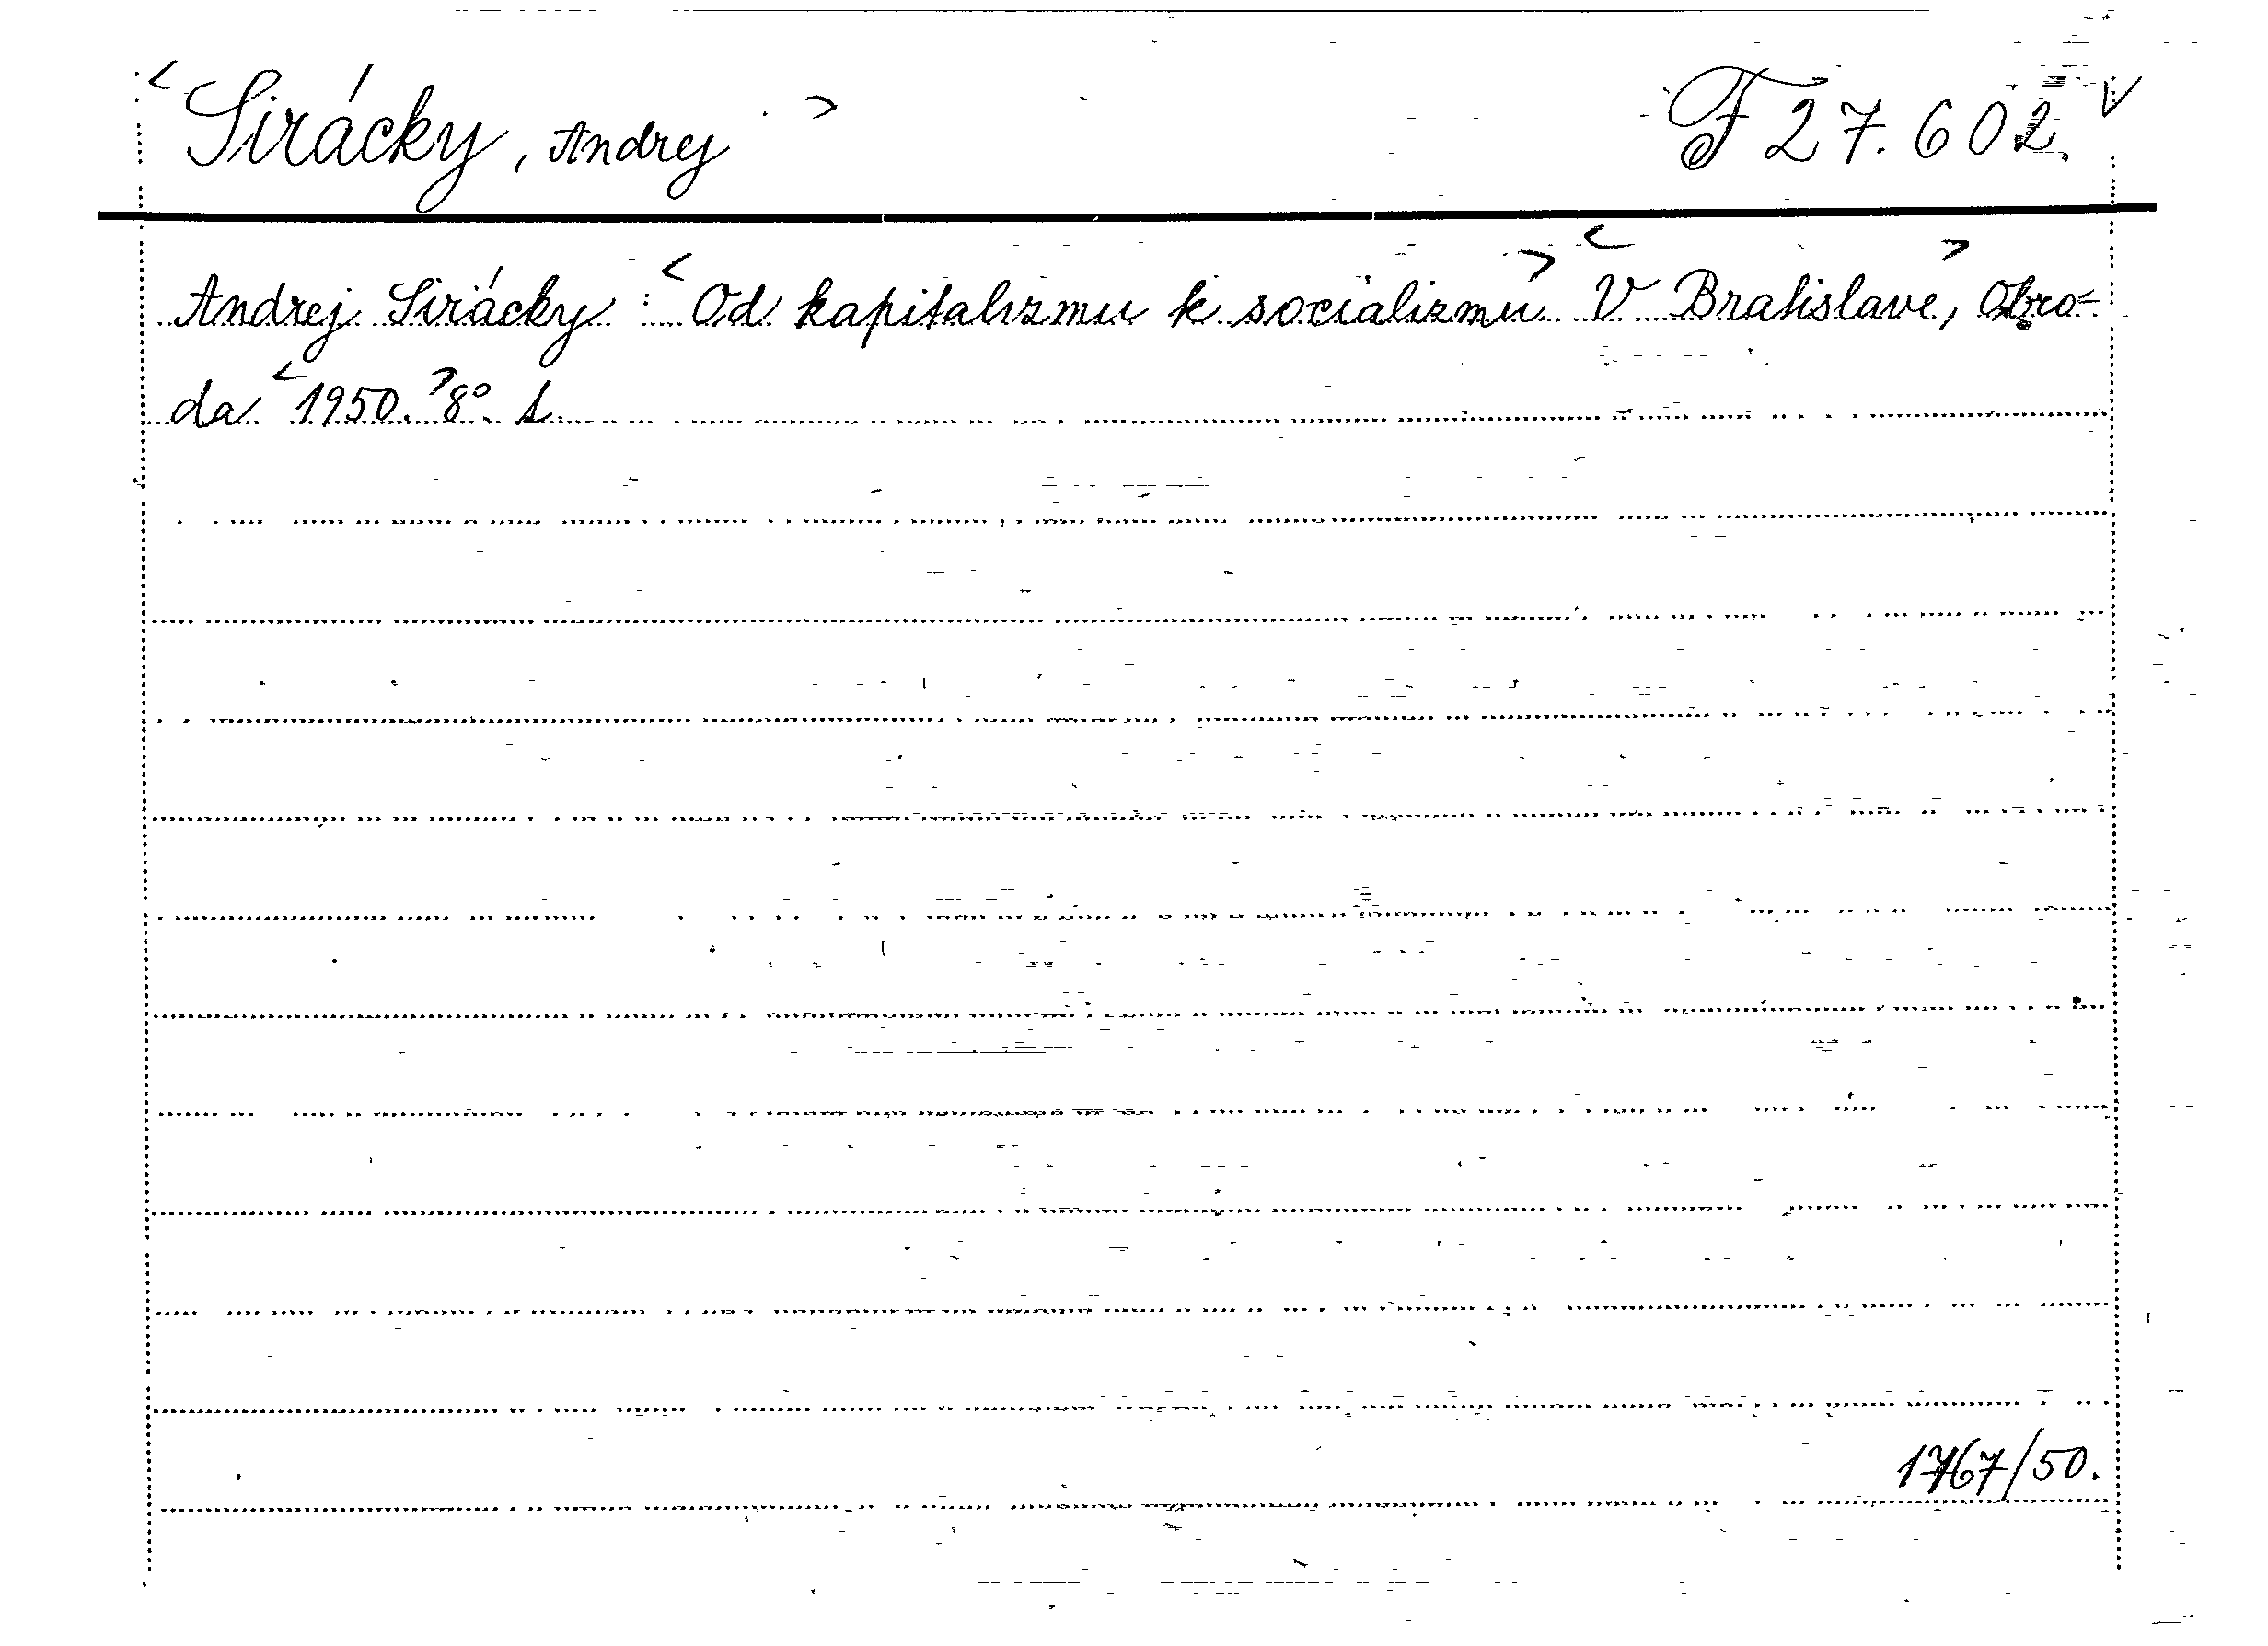 <Sirácky, Andrej> F 27.602 V
Andrej Sirácky: <Od kapitalizmu k socializmu> <V Bratislave,> Obro=
da <1950.> 8° 1.
1767/50.